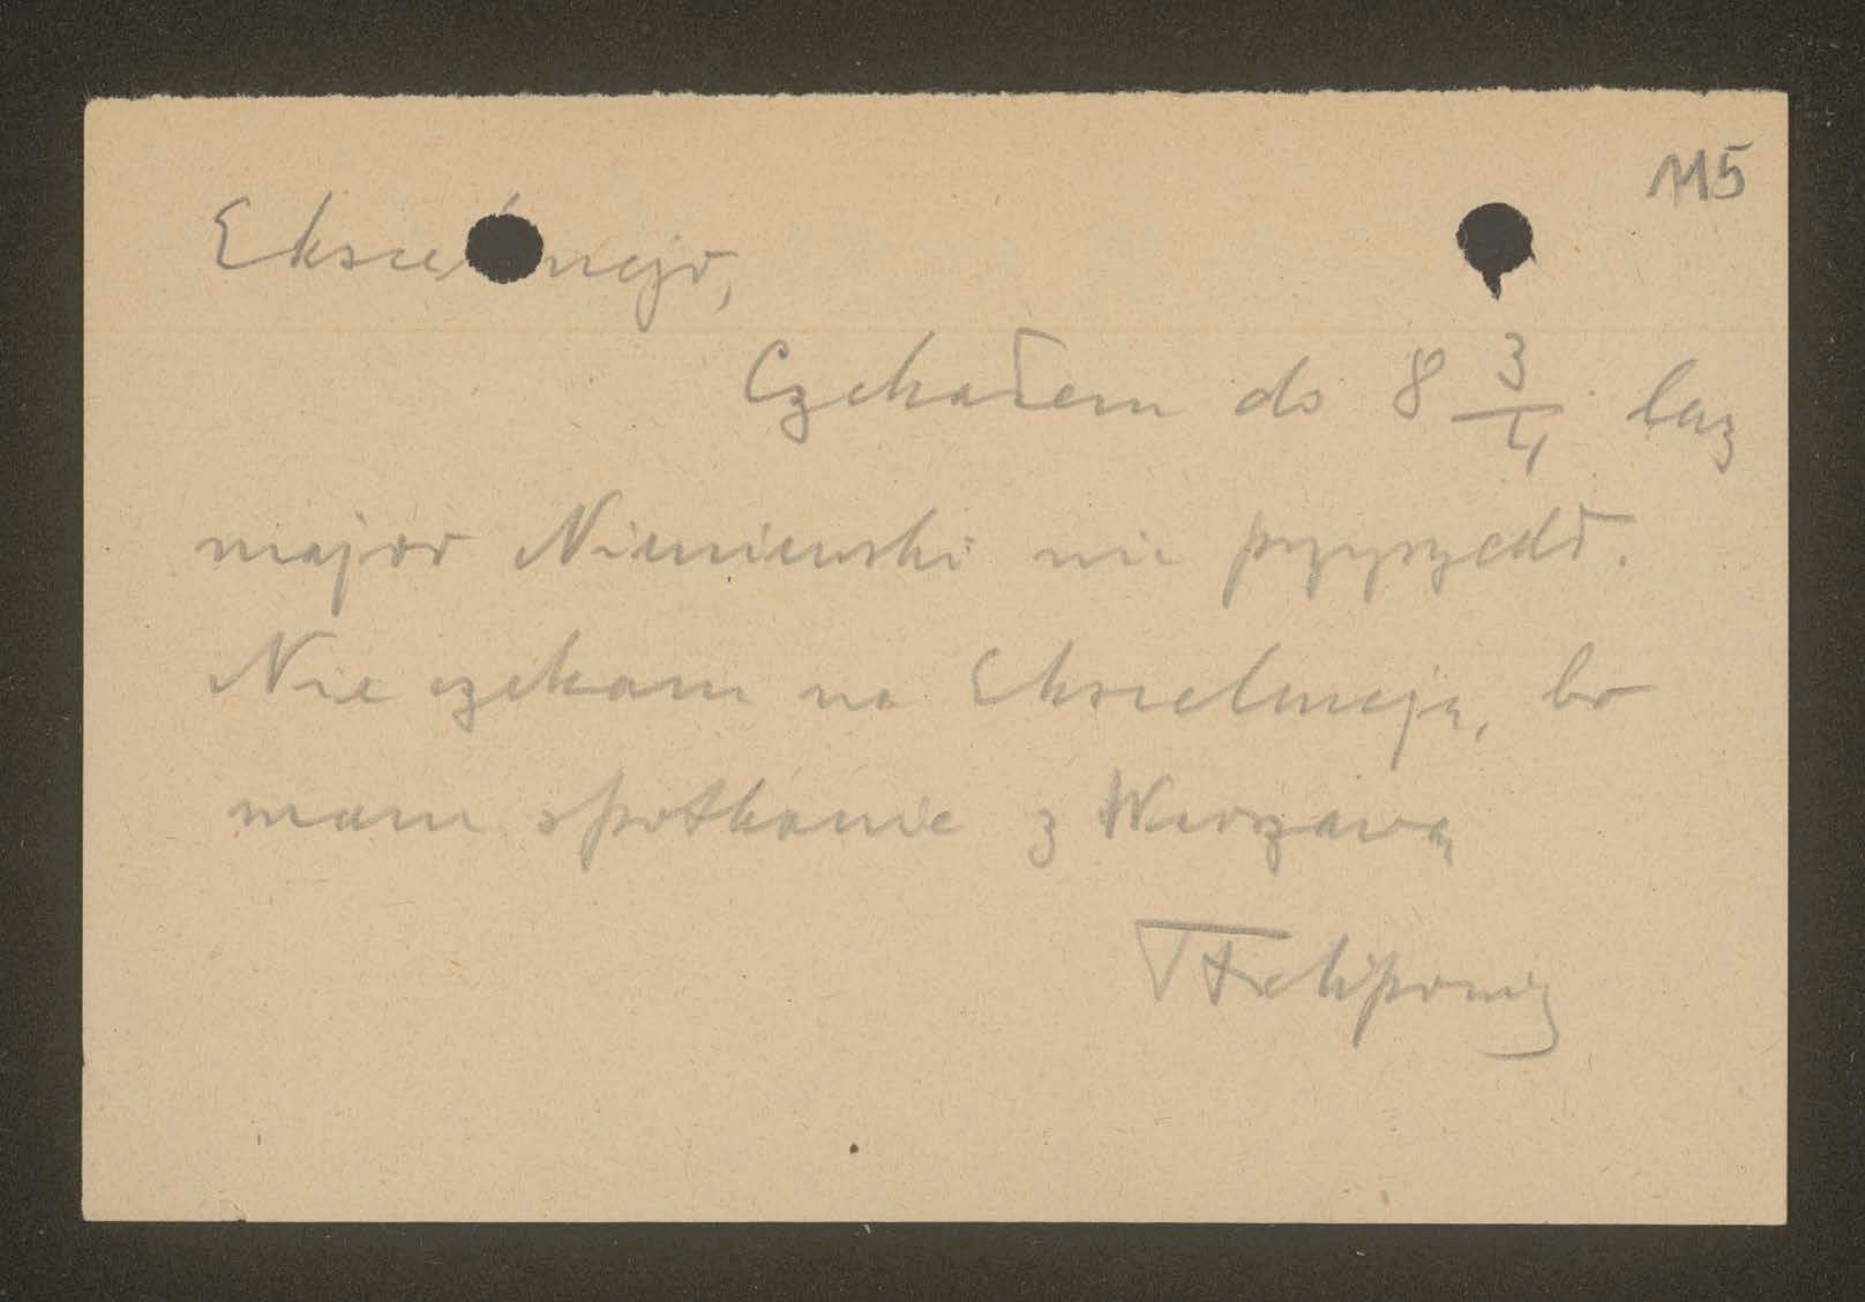 115
Ekscelencjo,
Czekałem do 8 3/4 lecz
major Niemiewski nie przyszedł.
Nie czekam na Ekscelencję, bo
mam spotkanie z Warszawą